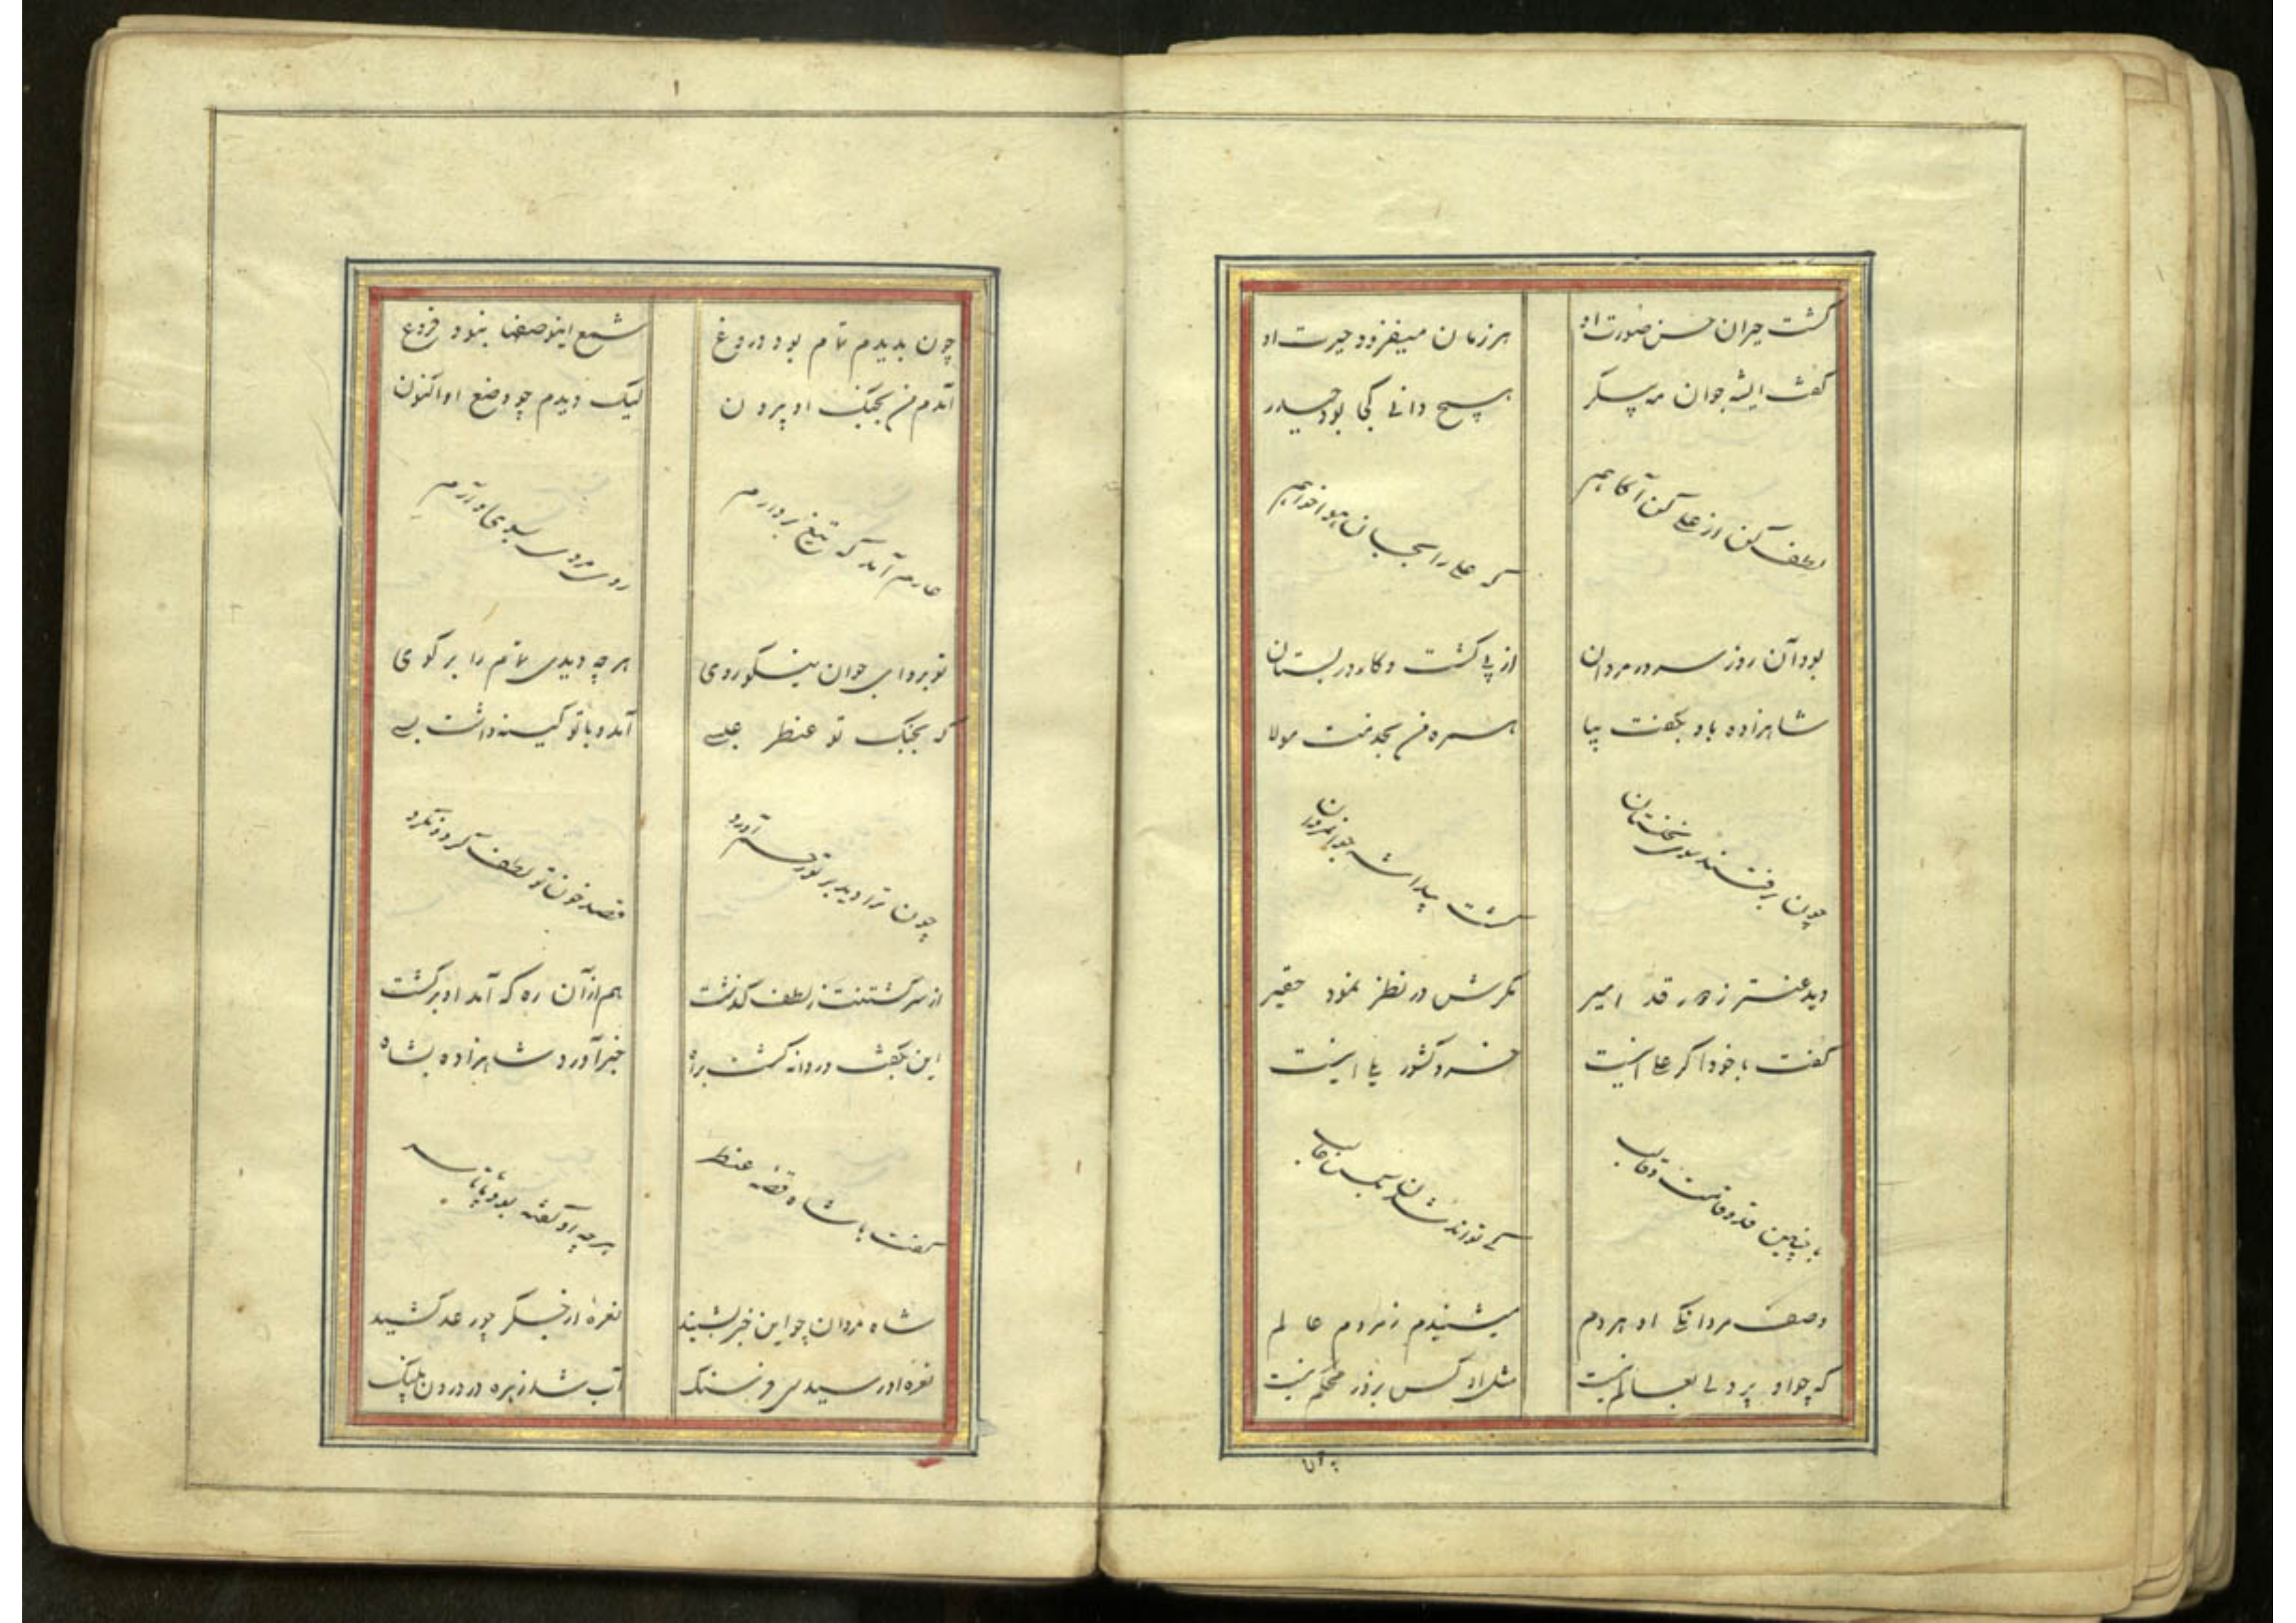 گشت حیران حسن صورت او هر زمان میفزود حیرت او
گفت ایشه جوان مه پیکر هیچ دانی کجا بود حیدر
لطف کن از علی کن آگاهم که علی را بجان هواخواهم
بود آن روز سرور مردان از پی گشت وکار در بستان
شاهزاده باو بگفت بیا همره من بخدمت مولا
چون برفتند سوی نخلستان گشت پیدا شه جوانمردان
دید عنتر ز دور قد امیر مکرش در نظر نمود حقیر
گفت با خود اگر علی اینست خسرو کشور یلی اینست
با چنین قد و قامت و قالب کی تواند شدن بمن غالب
وصف مردانگی او هر دم میشنیدم ز مردم عالم
که چو او پر دلی بعالم نیست مثل او کس بروز محکم نیست
چون بدیدم تمام بود دروغ شمع این وصفها نبود فروغ
آمدم من بجنگ او بیرون لیک دیدم چو وضع او اکنون
عارم آمد که تیغ بردارم روی مردی بسوی او آرم
تو برو ای جوان نیکوروی هر چه دیدی تمام را برگوی
که بجنگ تو عنطر جلی آمد و با تو کینه داشت بسی
چون ترا دید بر تو رحم آورد قصد خون تو لطف کرد و نکرد
از سر کشتنت ز لطف گذشت هم از آن ره که آمد او برگشت
این بگفت و روانه گشت براه خبر آورد شاهزاده بشاه
گفت با شاه قصه عنطر هر چه او گفته بود پا تا سر
شاه مردان چو این خبر بشنید نعره از جگر چو رعد کشید
نعره او رسید سی فرسنگ آب شد زهره در درون پلنگ